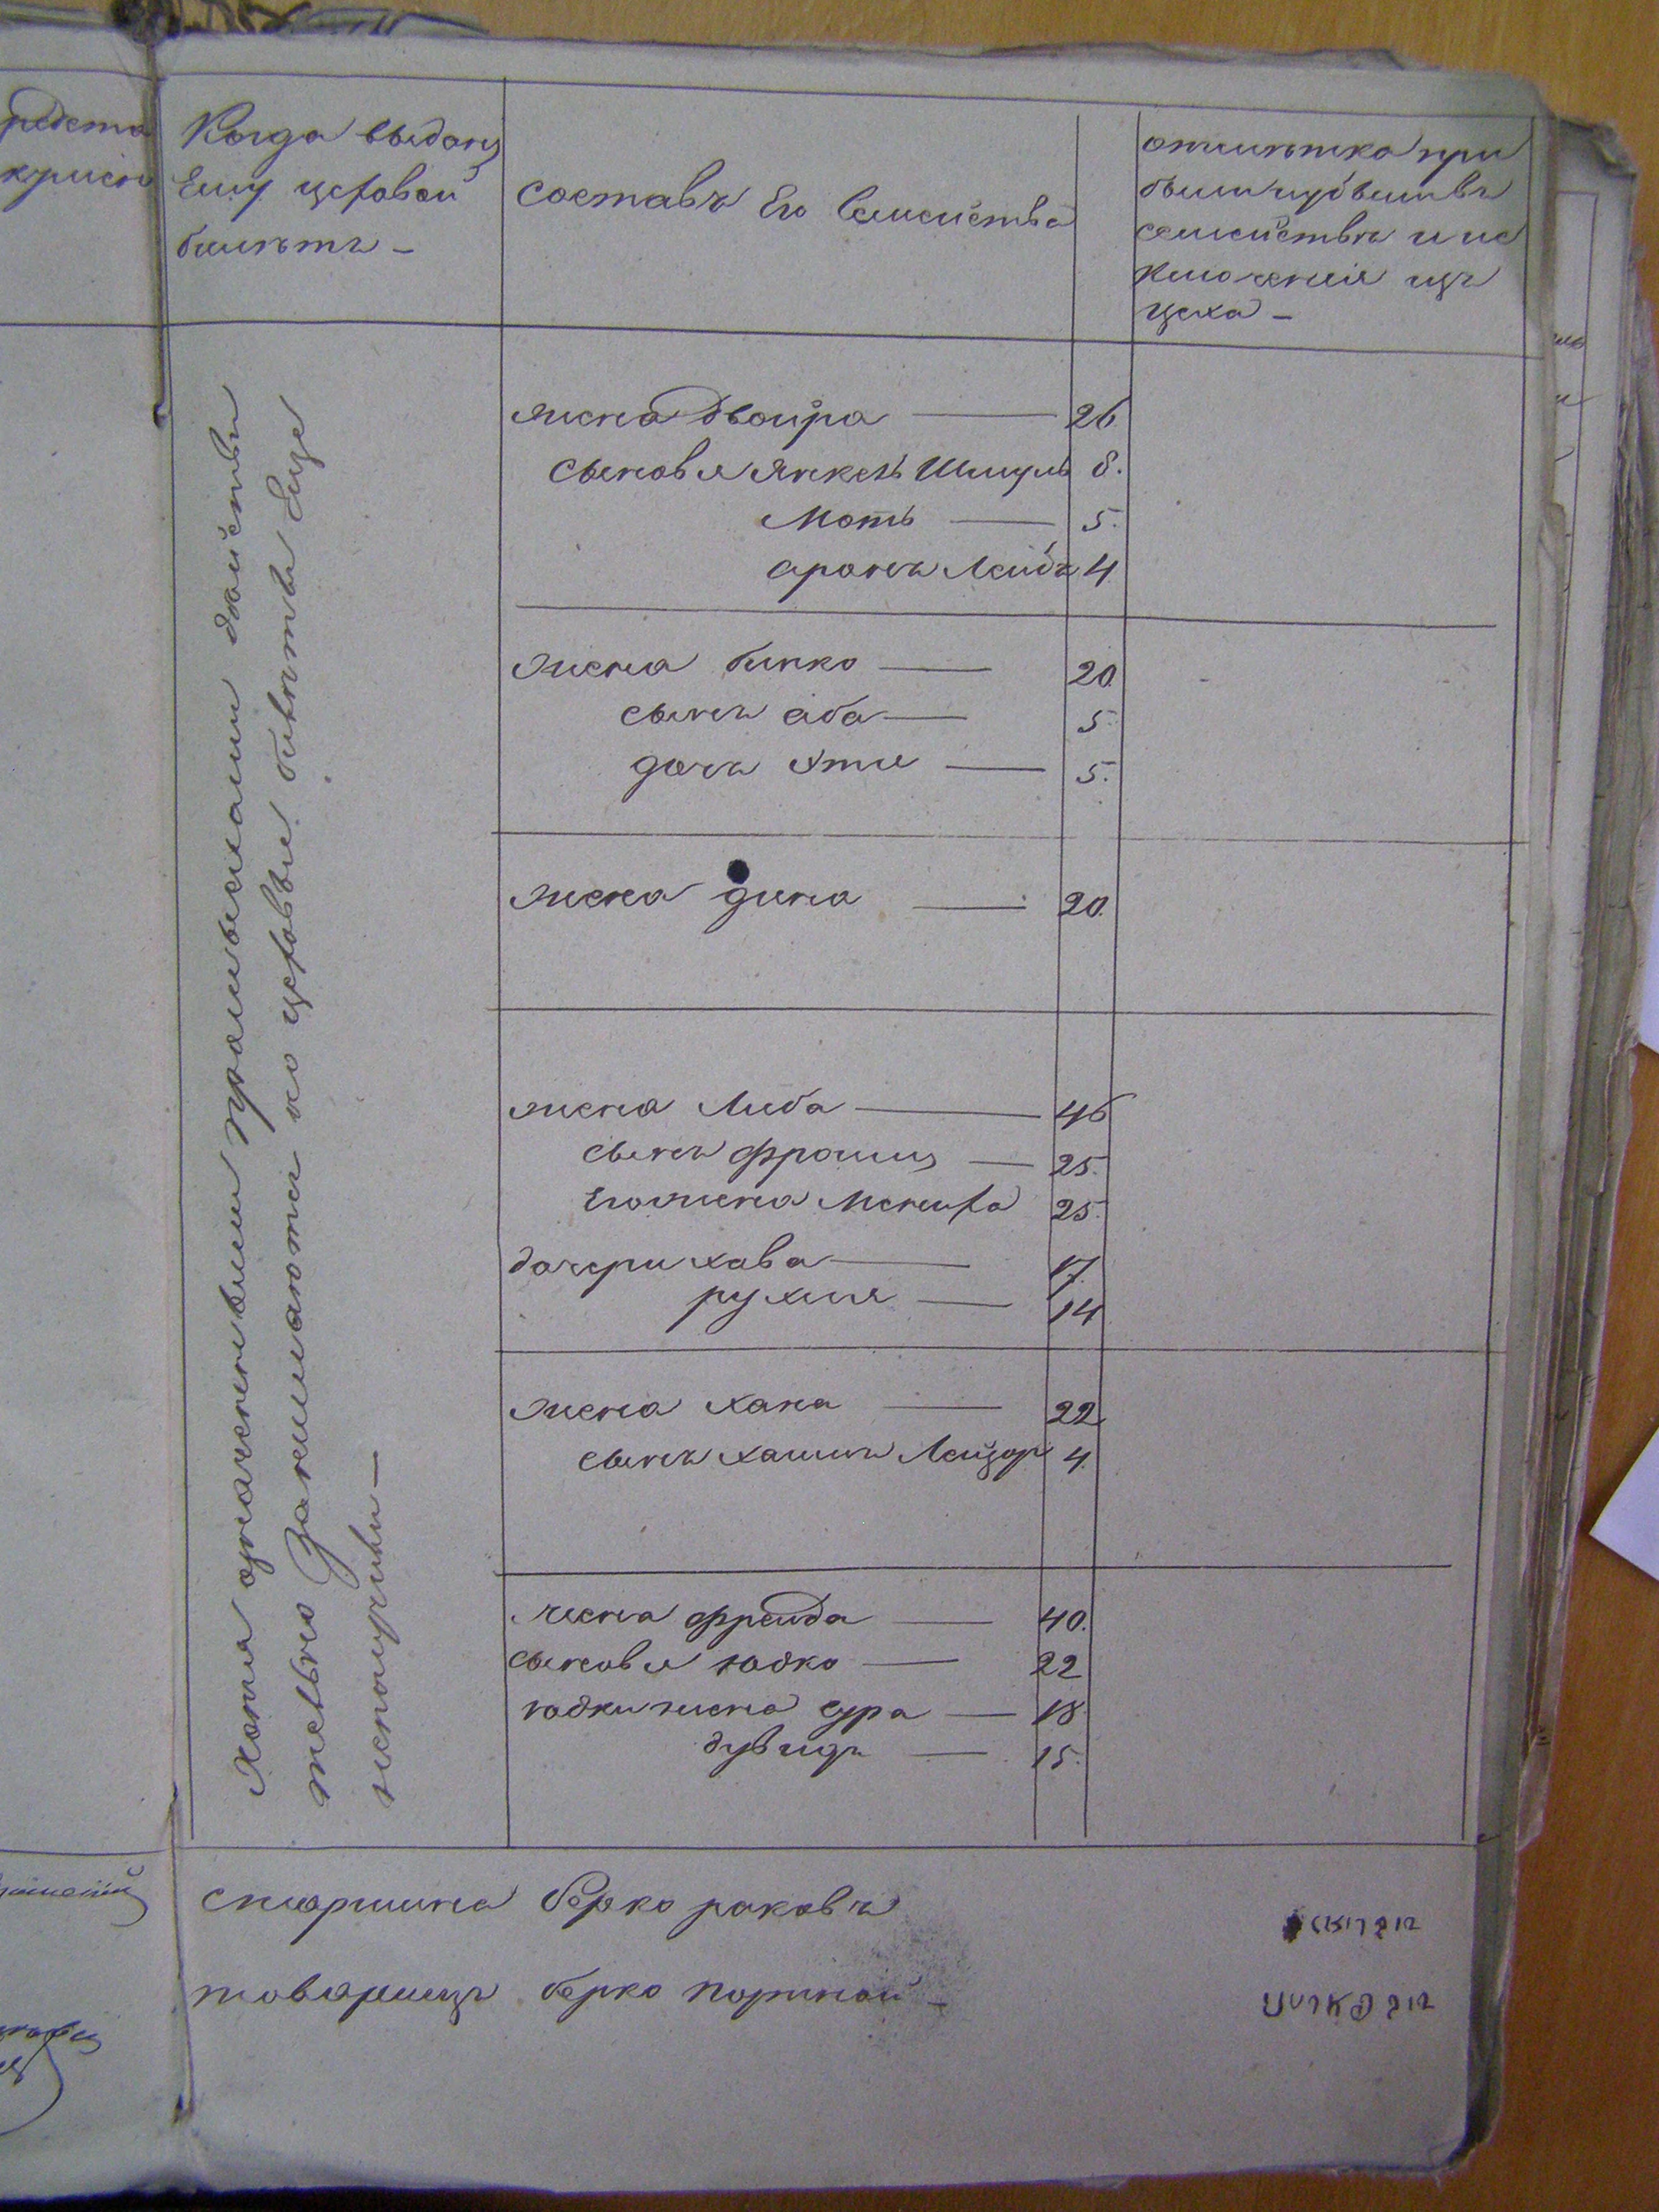 Когда выданъ
Ему цеховой
билетъ —
Составъ Его Семейства
отметка при
были и убыли въ
семействе и ис
ключения изъ
цеха —
Хотя означенными промыслами действи
тельно Занимаются но цеховые билеты Еще
неполучили —
жена Двойра — 26.
сыновья Янкель Шмуль 8.
Мотъ — 5.
аронъ Лейбъ 4
жена бинко — 20.
сынъ аба — 5.
дочь Хтие — 5.
жена дина — 20.
жена Либа — 46
сынъ Фроим — 25.
Его жена Мениха 25.
дочери хава — 17.
рухля — 14
жена хана — 22
сынъ хаимъ Лейзор 4.
жена фрейда — 40.
сыновья юдко — 22
юдки жена сура — 18
дувидъ — 15.
старшина берко раковъ
товарищъ берко портной —